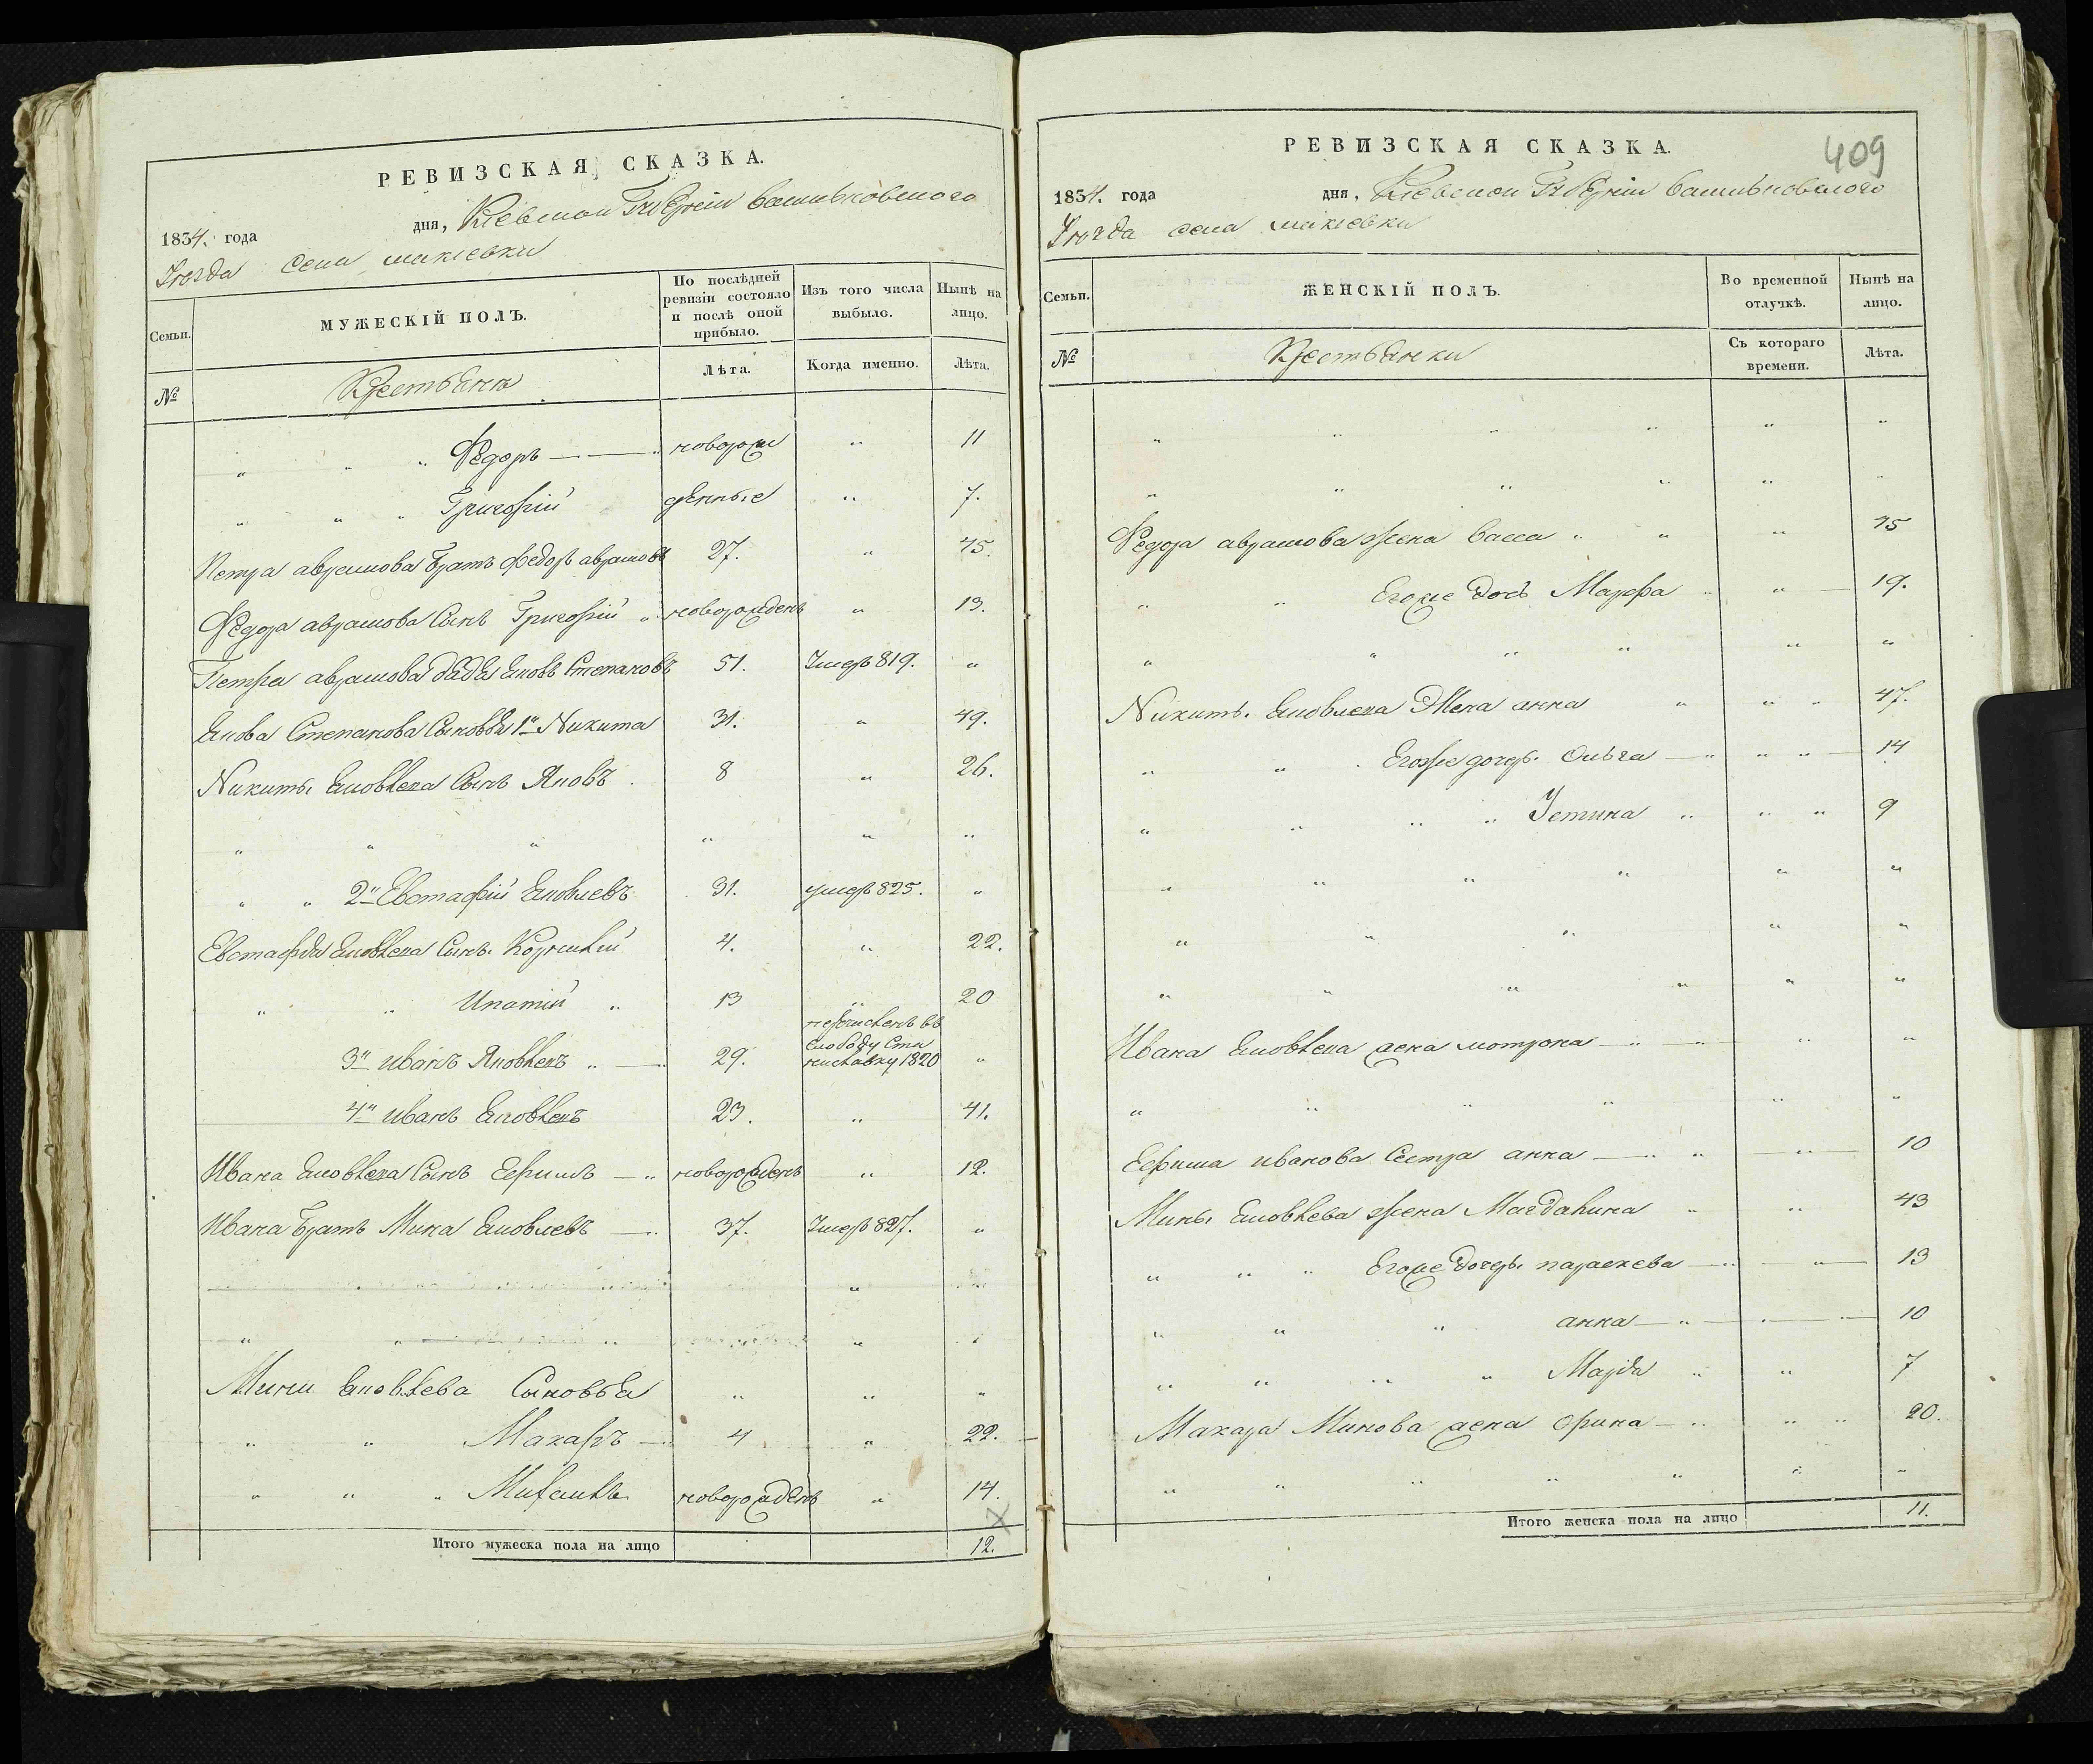 РЕВИЗСКАЯ СКАЗКА.
1834. года дня, Кіевской Губерніи васильковскаго
Уезда села макіевки
Семьи. МУЖЕСКІЙ ПОЛЪ. По послѣдней ревизіи состояло и послѣ оной прибыло. Изъ того числа выбыло. Нынѣ на лицо.
№ Крестьяне Лѣта. Когда именно. Лѣта.
" " " Федоръ новорож " 11
" " " Григорій денные " 7.
Петра аврамова братъ Федоръ аврамовъ 27. " 45.
Федора аврамова Сынъ Григорій " новорожденъ " 13.
Петра аврамова дядя яковъ Степановъ 51. Умеръ 819. "
якова Степанова Сыновья 1й Никита 31. " 49.
Никиты яковлева Сынъ Яковъ 8 " 26.
" " " " " "
" " 2й Евстафій яковлевъ 31. умеръ 825. "
Евстафія яковлева Сынъ Корнилій 4. " 22.
" " Ипатій " 13 " 20
3й иванъ Яковлевъ " 29. перечисленъ въ слободу 1820 "
4й иванъ яковлевъ 23. " 41.
Ивана яковлева Сынъ Ефримъ " новорожденъ " 12.
Ивана братъ Мина яковлевъ " 37. Умеръ 827. "
"
" " " "
Мини яковлева Сыновья " " "
" " Макаръ 4 " 22.
" " " новорожденъ " 14.
Итого мужеска пола на лицо 12.
РЕВИЗСКАЯ СКАЗКА.
409
1834. года дня, Кіевской Губерніи васильковскаго
Уезда села макіевки
Семьи. ЖЕНСКІЙ ПОЛЪ. Во временной отлучкѣ. Нынѣ на лицо.
№ Крестьянки Съ котораго времени. Лѣта.
" " " " " "
" " " " " "
Федора аврамова жена васса " " " 45
" " Егоже дочь Марфа " " 19.
" " " " " "
Никиты яковлева Жена анна " " " 47.
" " Егоже дочерь Ольга " " " 14
" " " " Устина " " " 9
" " " " " "
" " " " "
" " " " " "
Ивана яковлева жена мотрона " " " "
" " " " " "
Ефрима иванова Сестра анна " " " 10
Мины яковлева жена Магдалина " " 43
" " " Егоже дочерь параскева " " 13
" " " анна " 10
" " " " Марья " " 7
Макара Минова жена орина " " " 20.
" " " " " " "
Итого женска пола на лицо 11.